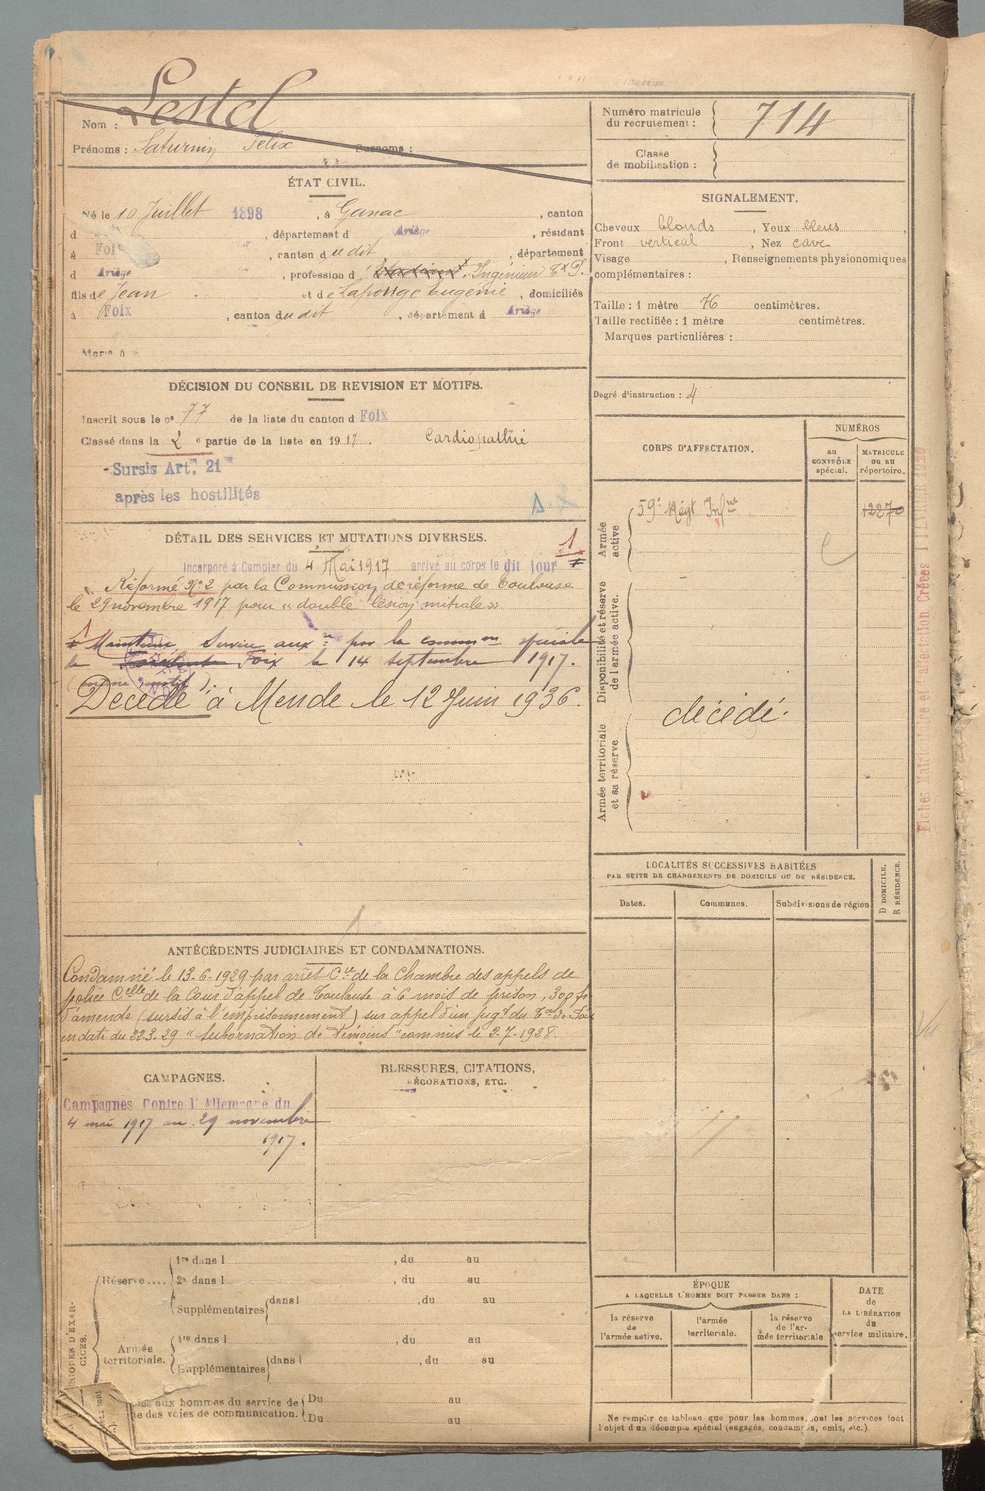 Nom : Lestel
Prénoms : Saturnin Félix Surnoms :
Numéro matricule du recrutement : 714
Classe de mobilisation :
ÉTAT CIVIL.
Né le 10 Juillet 1898, à Ganac, canton
d Foix, département d Ariège, résidant
à, canton du dit, département
d Ariège, profession d Étudiant. Ingénieur T.P.
fils de Jean et de Laponge Eugénie, domiciliés
à Foix, canton du dit, département d Ariège
Marié à
SIGNALEMENT.
Cheveux blonds, Yeux bleus,
Front vertical, Nez cave
Visage, Renseignements physionomiques
complémentaires :
Taille : 1 mètre 76 centimètres.
Taille rectifiée : 1 mètre centimètres.
Marques particulières :
Degré d'instruction : 4
DÉCISION DU CONSEIL DE REVISION ET MOTIFS.
Inscrit sous le no 77 de la liste du canton d Foix
Classé dans la 2e partie de la liste en 1917. Cardiopathie
Sursis Art. 21
après les hostilités
DÉTAIL DES SERVICES ET MUTATIONS DIVERSES.
1
Incorporé à Compter du 4 Mai 1917 arrivé au corps le dit jour
Réformé No 2 par la Commission de réforme de Toulouse
le 29 novembre 1917 pour « double lésion mitrale ».
1 Maintenu Service auxre par la commion spéciale
de Foix le 14 septembre 1917.
(même motif).
Décédé à Mende le 12 Juin 1936.
ANTÉCÉDENTS JUDICIAIRES ET CONDAMNATIONS.
Condamné le 13.6.1929 par arrêt Cre de la Chambre des appels de
police Celle de la Cour d'appel de Toulouse à 6 mois de prison, 300 fr
d'amende (sursis à l'emprisonnement) sur appel d'un jugt du Tal de Foix
en date du 22.3.29 "subornation de témoins" commis le 2.7.1928.
CAMPAGNES.
Campagnes Contre l'Allemagne du
4 mai 1917 au 29 novembre
1917.
BLESSURES, CITATIONS,
DÉCORATIONS, ETC.
PÉRIODES D'EXERCICES.
Réserve....
1re dans l, du au
2e dans l, du au
Supplémentaires dans l, du au
Armée territoriale.
1re dans l, du au
Supplémentaires dans l, du au
aux hommes du service de
des voies de communication.
Du au
Du au
CORPS D'AFFECTATION.
NUMÉROS
AU CONTRÔLE spécial.
MATRICULE OU AU répertoire.
Armée active
59e Régt Infie
1227
Disponibilité et réserve de l'armée active.
décédé.
Armée territoriale et sa réserve
LOCALITÉS SUCCESSIVES HABITÉES
PAR SUITE DE CHANGEMENTS DE DOMICILE OU DE RÉSIDENCE.
Dates.
Communes.
Subdivisions de région
D DOMICILE.
R RÉSIDENCE.
ÉPOQUE
A LAQUELLE L'HOMME DOIT PASSER DANS :
la réserve de l'armée active.
l'armée territoriale.
la réserve de l'armée territoriale
DATE
de
LA LIBÉRATION
du
service militaire.
Ne remplir ce tableau que pour les hommes dont les services font
l'objet d'un décompte spécial (engagés, condamnés, omis, etc.).